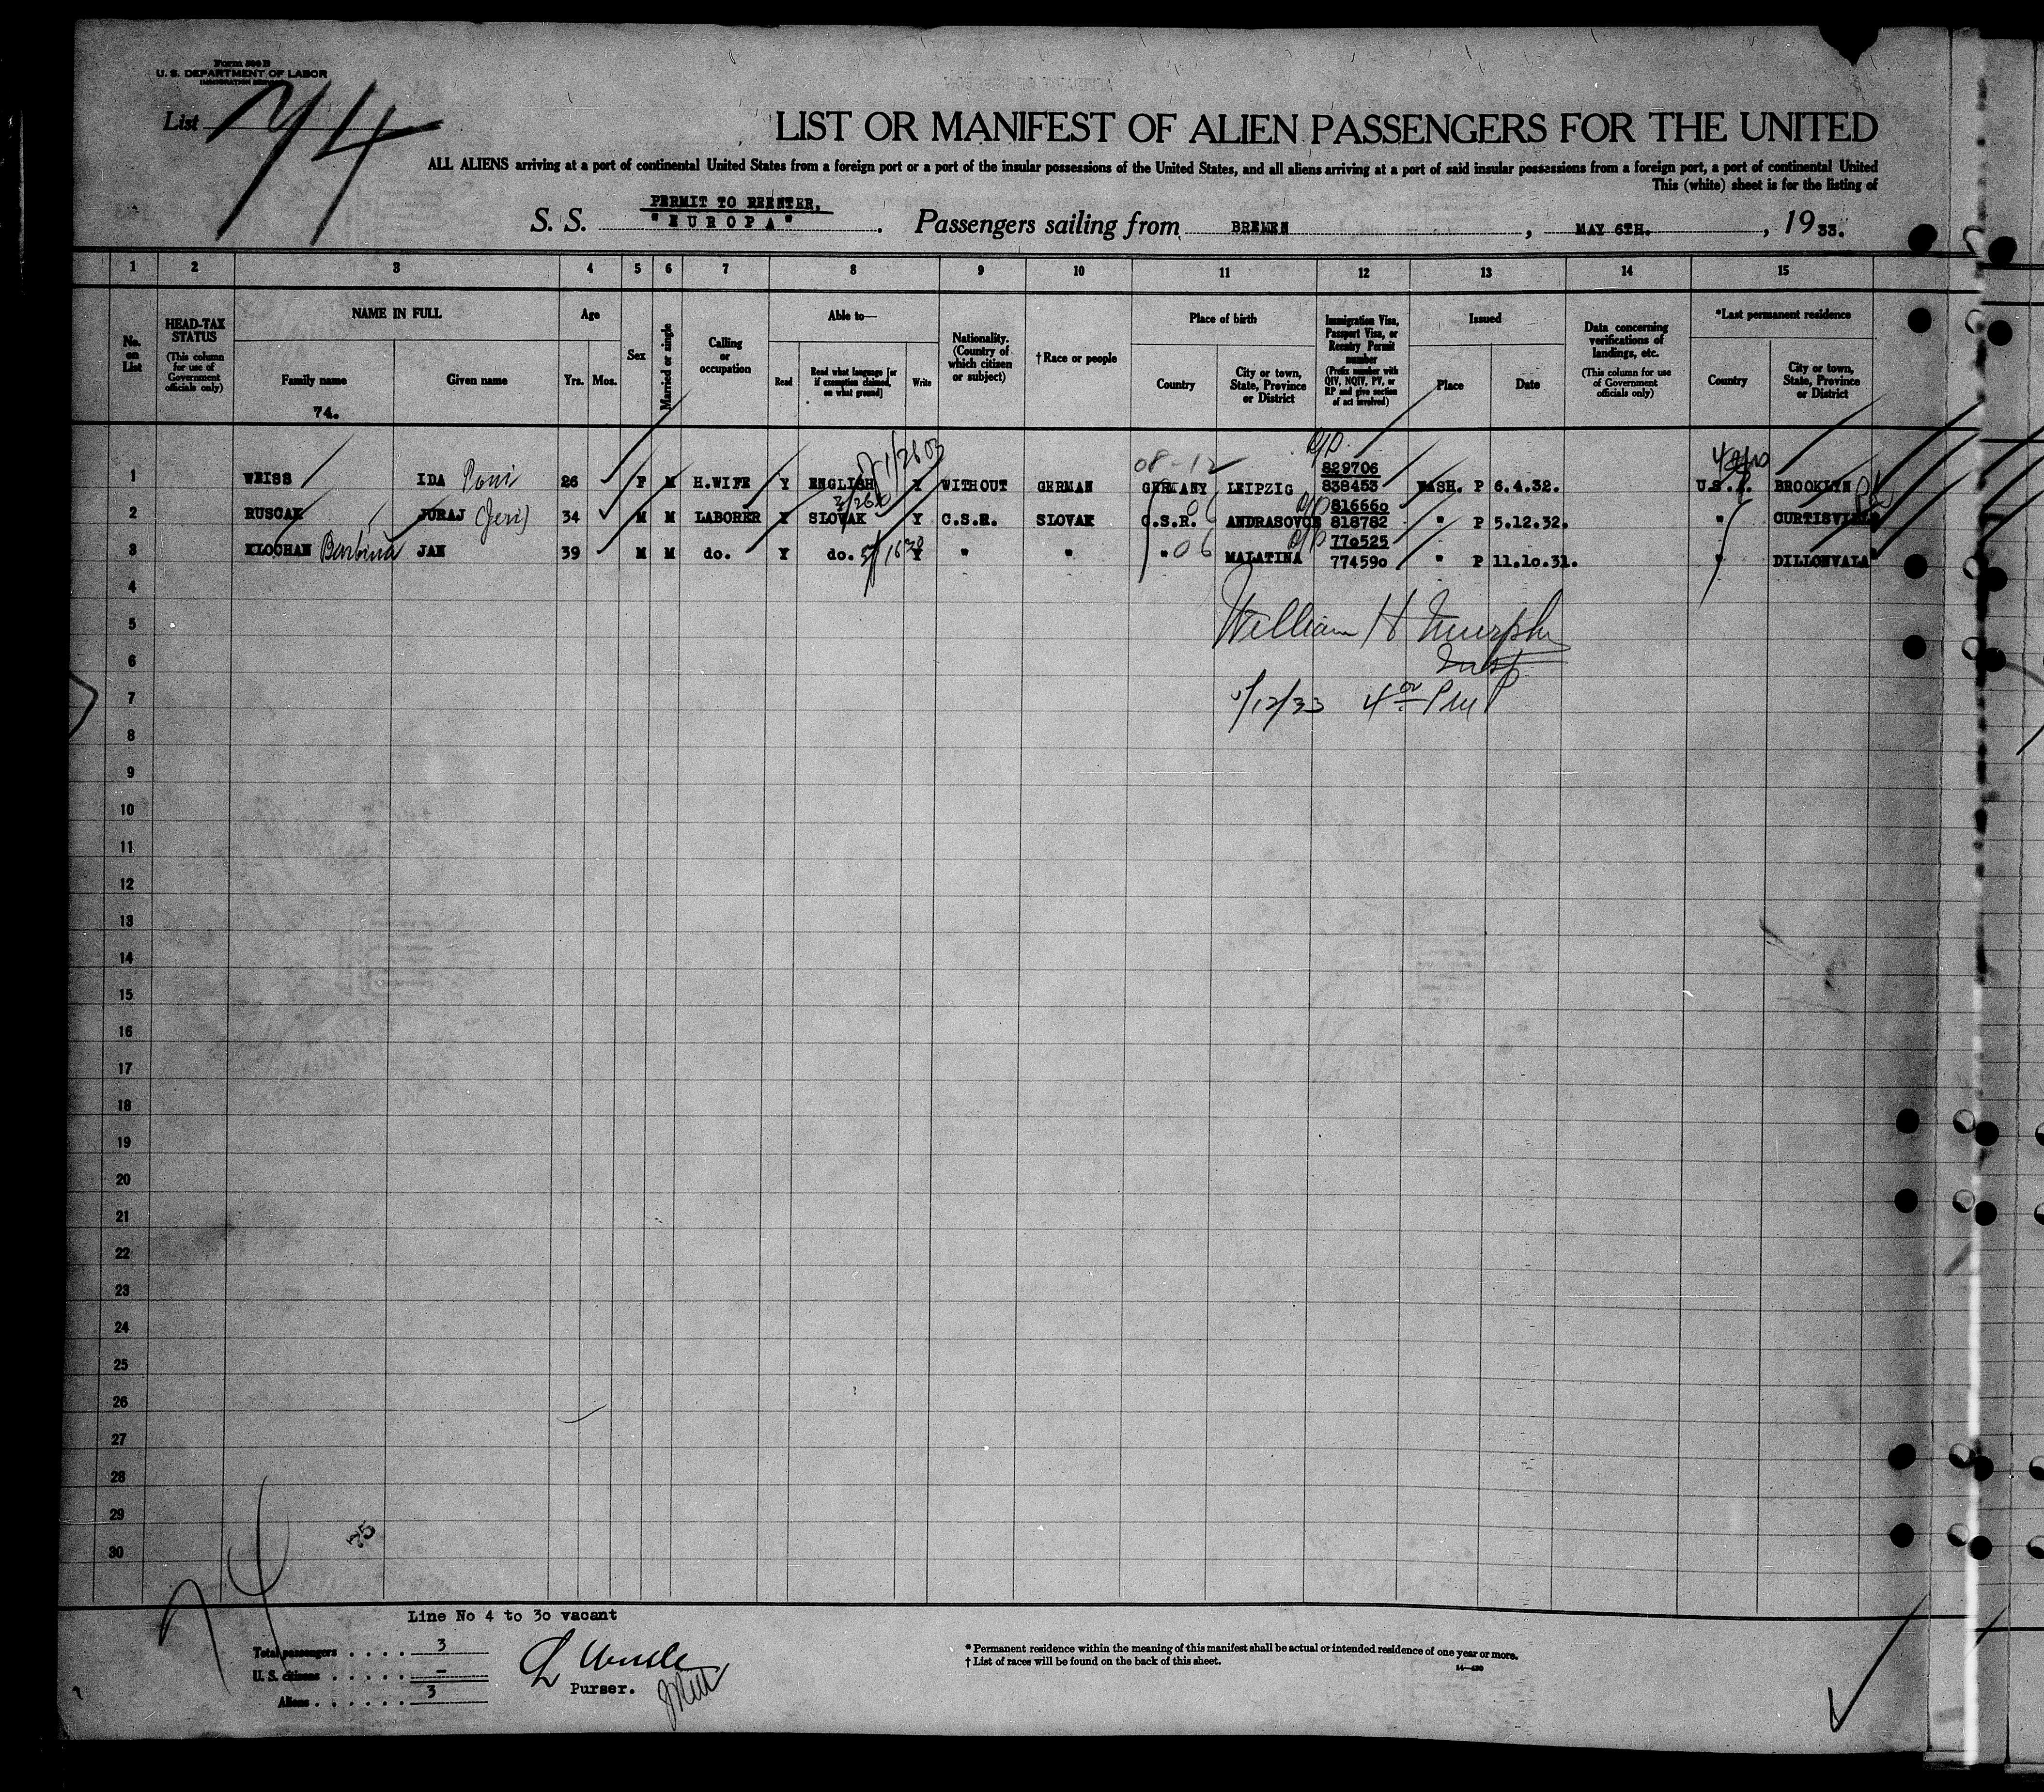 Form 500 B
U. S. DEPARTMENT OF LABOR
IMMIGRATION SERVICE
List 74
LIST OR MANIFEST OF ALIEN PASSENGERS FOR THE UNITED
ALL ALIENS arriving at a port of continental United States from a foreign port or a port of the insular possessions of the United States, and all aliens arriving at a port of said insular possessions from a foreign port, a port of continental United
This (white) sheet is for the listing of
PERMIT TO REENTER.
S. S. "EUROPA". Passengers sailing from BREMEN, MAY 6TH., 1933.
1 2 3 4 5 6 7 8 9 10 11 12 13 14 15
No. on List
HEAD-TAX STATUS (This column for use of Government officials only)
NAME IN FULL
Family name
Given name
74.
Age
Yrs. Mos.
Sex
Married or single
Calling or occupation
Able to—
Read
Read what language [or if exemption claimed, on what ground]
Write
Nationality. (Country of which citizen or subject)
† Race or people
Place of birth
Country
City or town, State, Province or District
Immigration Visa, Passport Visa, or Reentry Permit number (Prefix number with QIV, NQIV, PV, or RP and give section of act involved)
Issued
Place
Date
Data concerning verifications of landings, etc. (This column for use of Government officials only)
*Last permanent residence
Country
City or town, State, Province or District
08-12
829706
1 WEISS IDA 26 F M H.WIFE Y ENGLISH Y WITHOUT GERMAN GERMANY LEIPZIG 838453 WASH. P 6.4.32. U.S.A. BROOKLYN
06 816660
2 RUSCAK JURAJ 34 M M LABORER Y SLOVAK Y C.S.R. SLOVAK C.S.R. ANDRASOVCE 818782 " P 5.12.32. " CURTISVILLE
06 770525
3 KLOCHAN JAN 39 M M do. Y do. Y " " " MALATINA 774590 " P 11.10.31. " DILLONVALA
4
5
William H Murphy
6
Insp
7
5/12/33
8
9
10
11
12
13
14
15
16
17
18
19
20
21
22
23
24
25
26
27
28
29
75
30
74
Line No 4 to 30 vacant
Total passengers . . . . 3
U. S. citizens . . . . . —
Aliens . . . . . . 3
Purser.
* Permanent residence within the meaning of this manifest shall be actual or intended residence of one year or more.
† List of races will be found on the back of this sheet.
14—430